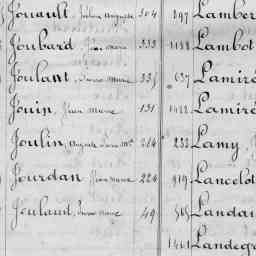 Jouault, Auguste 304 897 Lamber
Joubard, Marie 333 1188 Lambot
Joulant, Marie 335 637 Lamiré
Jouin, Jean Marie 131 1422 Lamiré
Joulin, Auguste Louis Mie 264 233 Lamy,
Jourdan Jean Marie 224 919 Lancelot
Joulaud, Marie 49 505 Landai
1441 Landegr